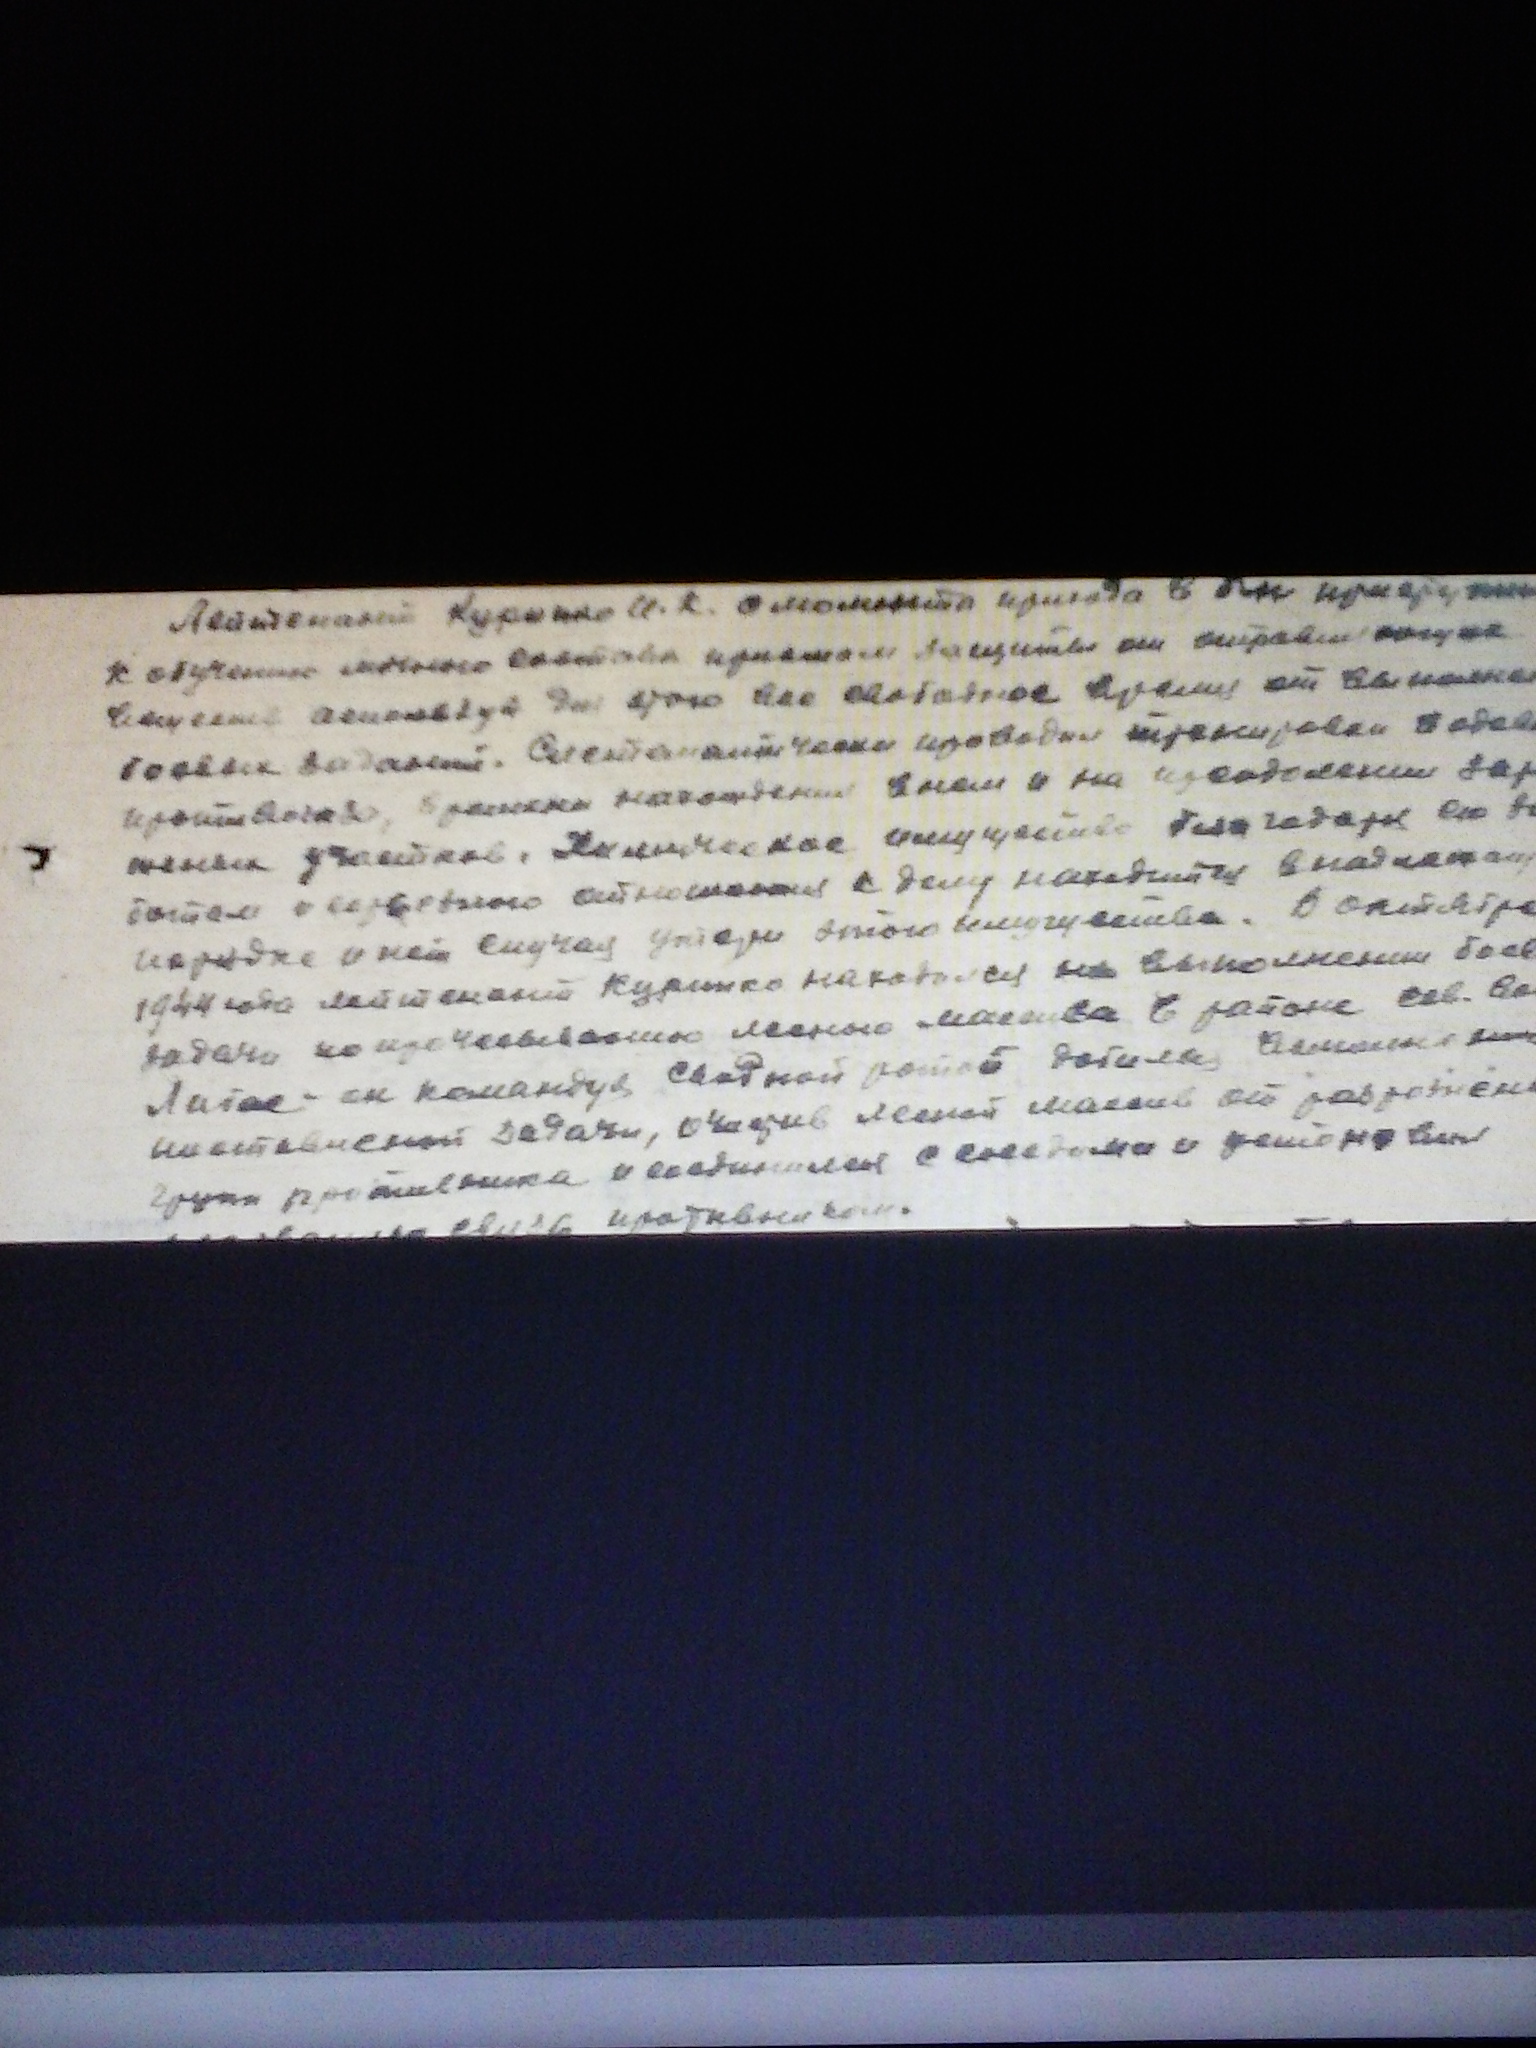 Лейтенант Куринко И.К. с момента прихода в б-н приступил
к обучению личного состава приемам защиты от отравляющих
веществ используя для этого все свободное время от выполнен
боевых заданий. Систематически проводил тренировки в одев
противогаза, времени нахождения в нем и на преодолении зар
женых участков. Химическое имущество благодаря его
и серьезного отношения к делу находится в надлежащ
порядке и нет случая утери этого имущества. В октябре
1944 года лейтенант Куринко находился на выполнении боев
задачи по прочесыванию лесного массива в районе сев. вос
он командуя сводной ротой добился
поставленной задачи, очистив лесной массив от разрознен
групп противника и соединился с соседями и установил
связь противником.